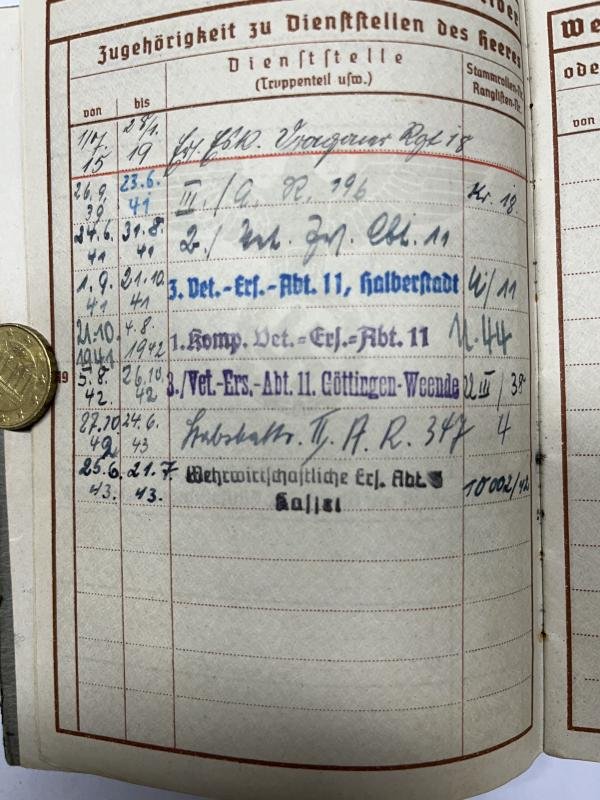 Zugehörigkeit zu Dienststellen des Heeres
von bis
Dienststelle
(Truppenteil usw.)
Stammrollen-Nr.
Ranglisten-Nr.
15 19 Rgt 18
26.9. 39 23.6. 41 III./A. R. 196 Kr. 18
24.6. 41 31.8. 41 2./ Vet. Ers. Abt. 11
1.9. 41 21.10. 41 3. Vet.-Ers.-Abt. 11, Halberstadt U/11
21.10. 1941 4.8. 1942 1. Komp. Vet.=Ers.=Abt. 11 U.44
5.8. 42. 26.10. 42 3./Vet.-Ers.-Abt. 11. Göttingen-Weende 22 III/38
27.10 42 24.6. 43 Stabsbattr. II. A. R. 347 4
25.6. 43. 21.7. 43. Wehrwirtschaftliche Ers. Abt. 10002/42
Kassel
We
ode
von